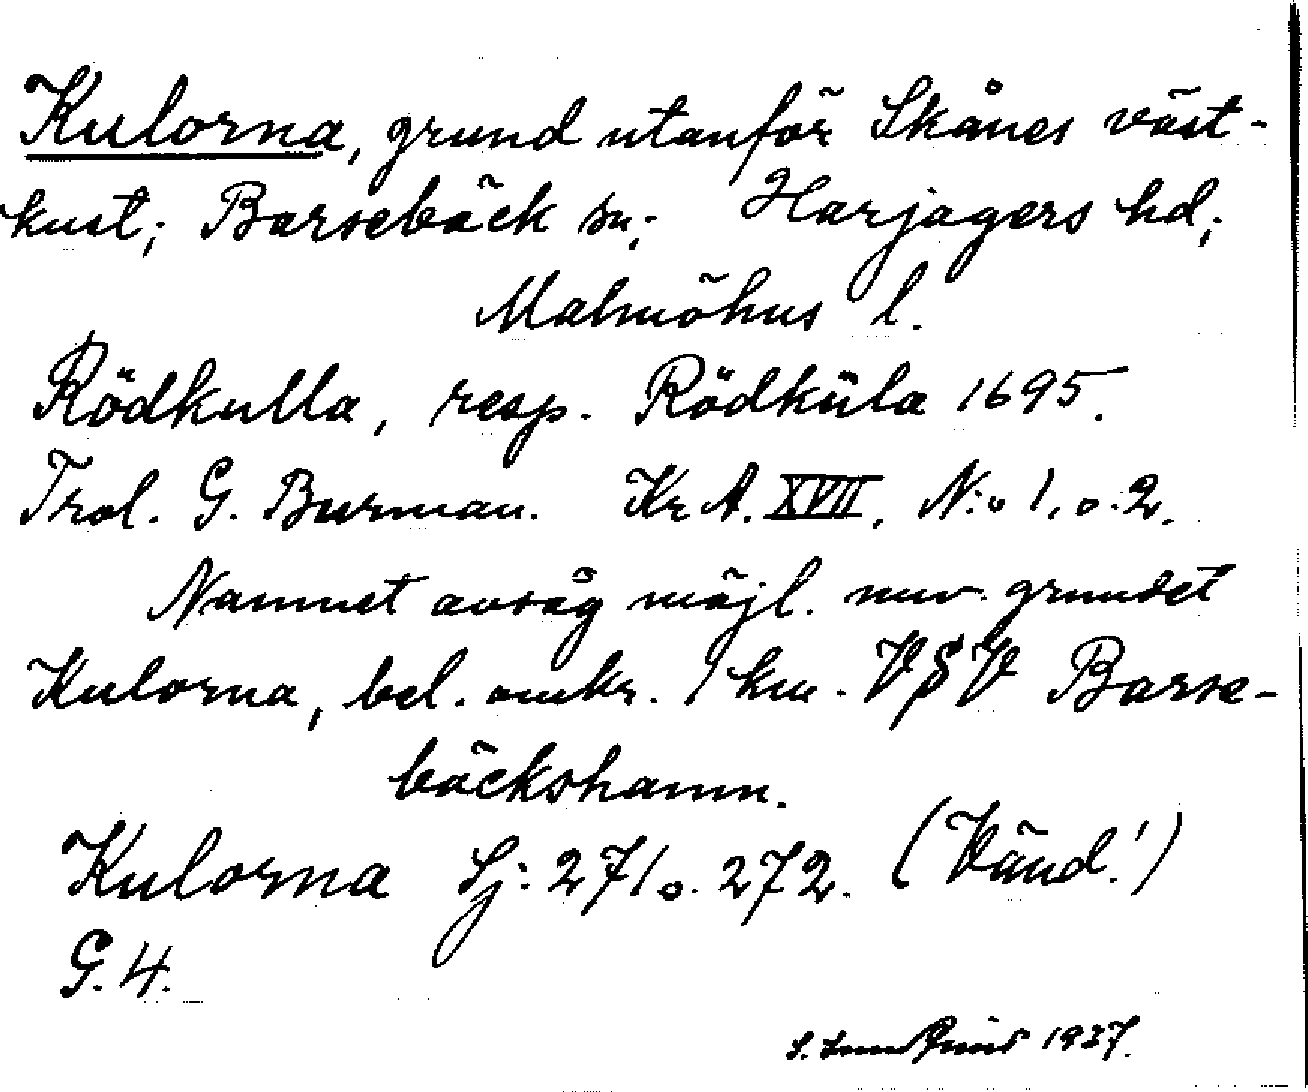 Kulorna, grund utanför Skånes väst-
kust; Barsebäck sn; Harjagers hd;
Malmöhus l.
Rödkulla, resp. Rödküla 1695.
Trol. G. Burman. Kr A. XVII, N:o 1. o. 2.
Namnet avsåg möjl. nuv. grundet
Kulorna, bel. omkr. 1 km. VSV Barse-
bäckshamn.
Kulorna Sj: 271 o. 272. (Vänd!)
G. 4.
S. 1937.